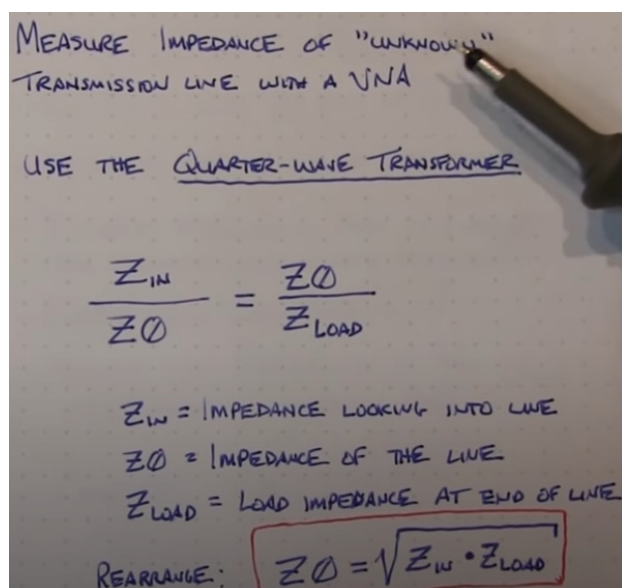 MEASURE IMPEDANCE OF "UNKNOWN"
TRANSMISSION LINE WITH A VNA
USE THE QUARTER-WAVE TRANSFORMER
Z_IN / ZØ = ZØ / Z_LOAD
Z_IN = IMPEDANCE LOOKING INTO LINE
ZØ = IMPEDANCE OF THE LINE
Z_LOAD = LOAD IMPEDANCE AT END OF LINE
REARRANGE: ZØ = √(Z_IN • Z_LOAD)